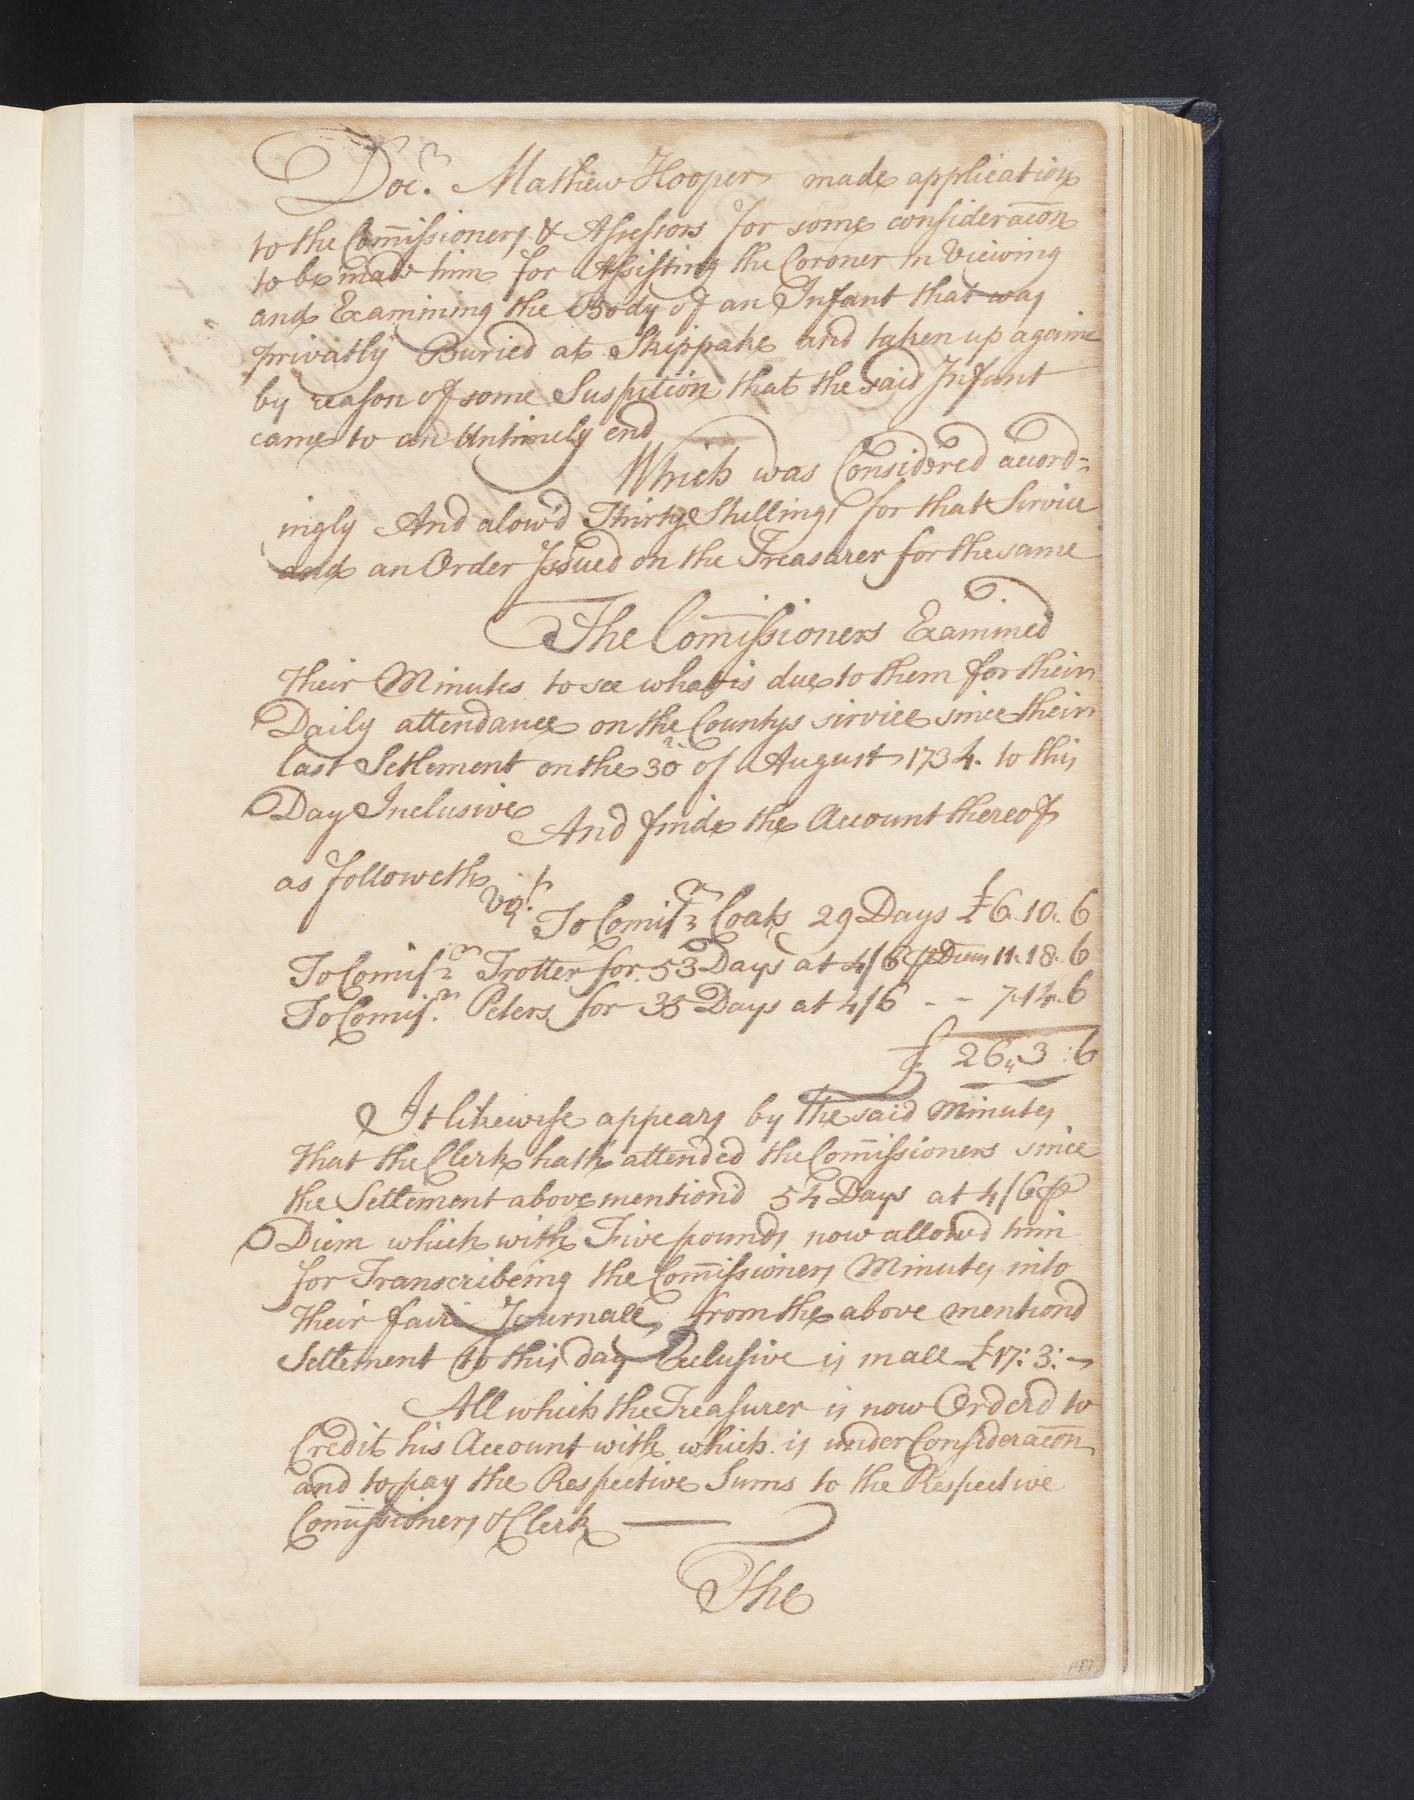 Docr. Mathew Hooper made application
to the Com̄issioners & Assessors for some considerac̄on
to be made him for Assisting the Coroner in Viewing
and Examining the Body of an Infant that was
privatly Buried at Skippake and taken up againe
by reason of some Suspition that the said Infant
came to an Untimely end
Which was Considered accord=
ingly And alow'd Thirty Shillings for that Service
and an Order Issued on the Treasurer for the same
The Com̄issioners Examined
their Minutes to see what is due to them for their
Daily attendance on the Countys service since their
last Setlement on the 30 of August 1734. to this
Day Inclusive
And finde the Account thereof
as followeth
Vizt.
To Comisr. Coats 29 Days £6.10.6
To Comisr. Trotter for 53 Days at 4/6 ⅌ Diem 11.18.6
To Comisr. Peters for 35 Days at 4/6 - - 7.14.6
£ 26,, 3 : 6
It likewise appears by the said Minutes
that the Clerk hath attended the Com̄issioners since
the Settlement above mention'd 54 Days at 4/6 ⅌
Diem which with Five pounds now allowd him
for Transcribeing the Com̄issioners Minutes into
their fair Journall, from the above mentiond
Settlement to this day Exclusive is in all £17:3:-
All which the Treasurer is now Orderd to
Credit his Account with which is under Considerac̄on
and to pay the Respective Sums to the Respective
Com̄issioners & Clerk
The